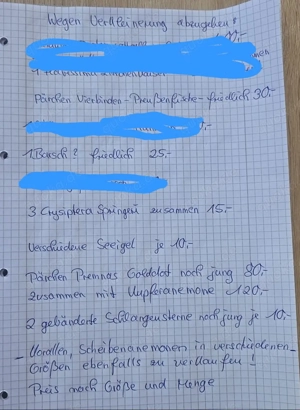 Wegen Verkleinerung abzugeben!
10,-
Pärchen Vierbinden-Preußenfische-friedlich 30,-
,-
1 Barsch? friedlich 25,-
3 Crysiptera Springeri zusammen 15,-
Verschiedene Seeigel je 10,-
Pärchen Premnas Goldolot noch jung 80,-
zusammen mit Kupferanemone 120,-
2 gebänderte Schlangensterne noch jung je 10,-
- Korallen, Scheibenanemonen in verschiedenen
Größen ebenfalls zu verkaufen!
Preis nach Größe und Menge